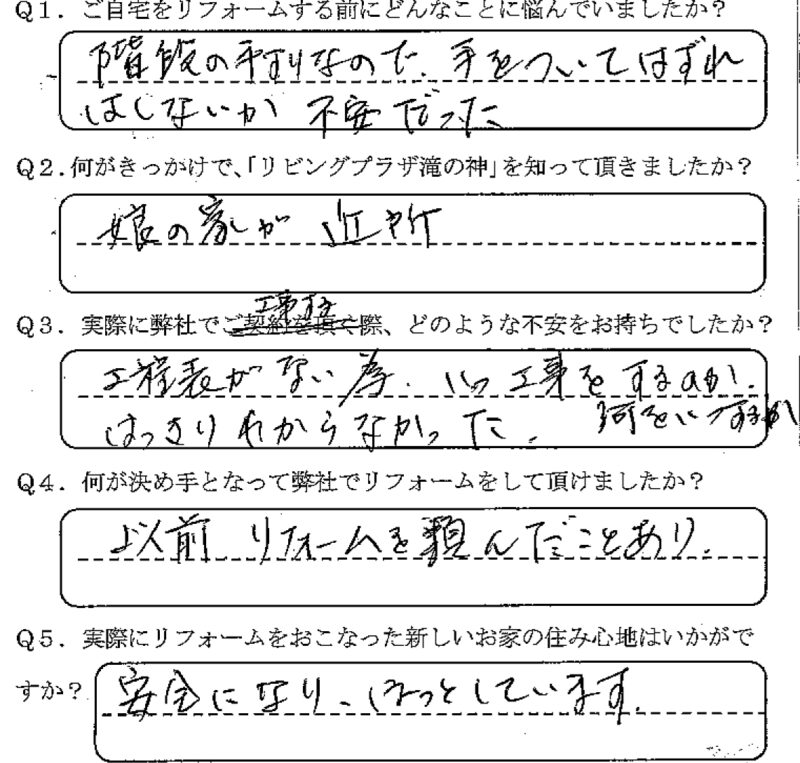 Q1．ご自宅をリフォームする前にどんなことに悩んでいましたか？
階段の手すりなので、手をついてはずれ
はしないか 不安だった
Q2．何がきっかけで、「リビングプラザ滝の神」を知って頂きましたか？
娘の家が 近所
工事する
Q3．実際に弊社でご契約を頂く際、どのような不安をお持ちでしたか？
工程表がない為、いつ工事をするのか、
はっきりわからなかった。 何をいつするか
Q4．何が決め手となって弊社でリフォームをして頂けましたか？
以前 リフォームを頼んだことあり、
Q5．実際にリフォームをおこなった新しいお家の住み心地はいかがで
すか？
安全になり、ほっとしています。